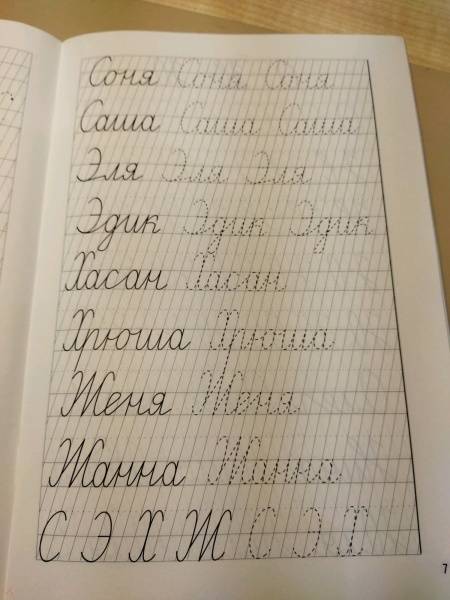 Соня Соня Соня
Саша Саша Саша
Эля Эля Эля
Эдик Эдик Эдик
Хасан Хасан
Хрюша Хрюша
Женя Женя
Жанна Жанна
С Э Х Ж С Э Х
7